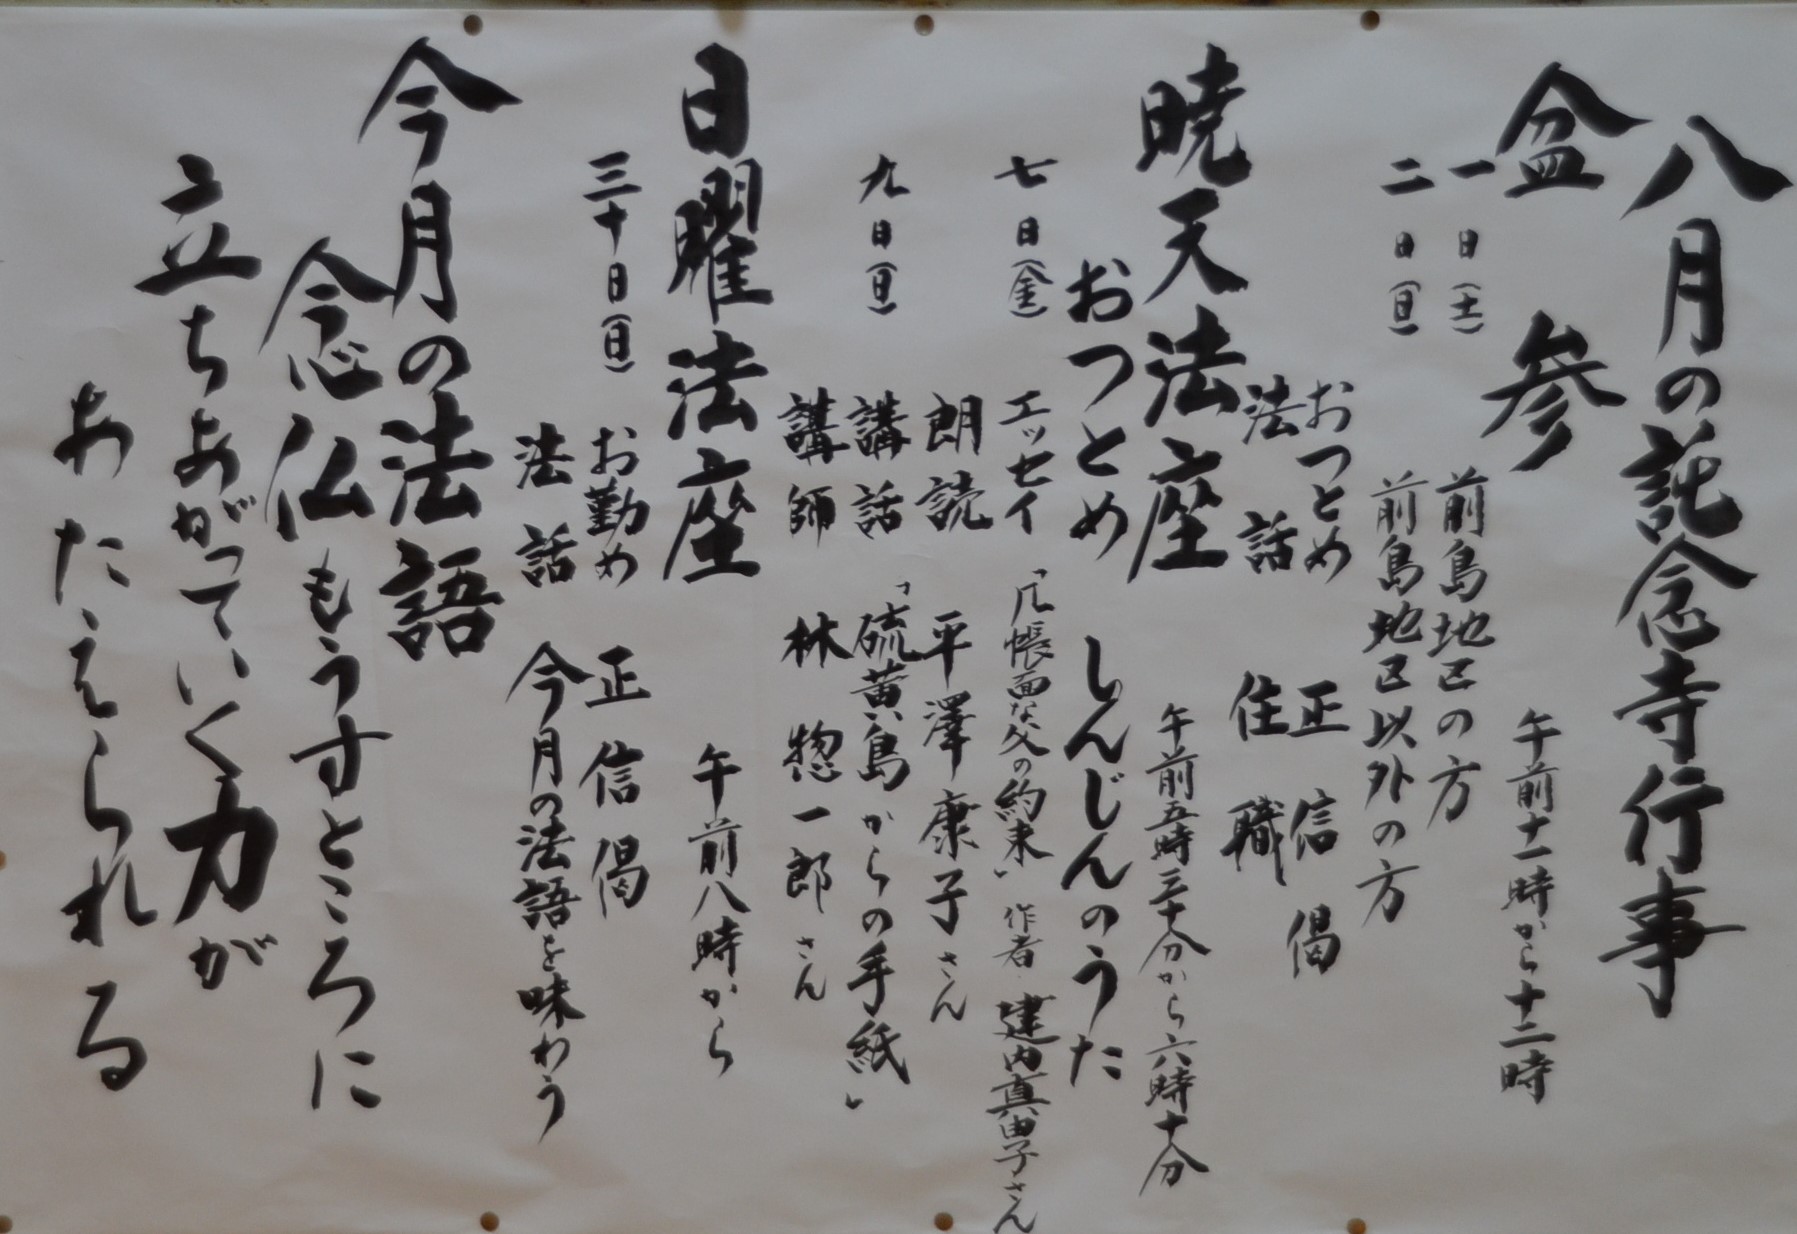 八月の託念寺行事
盆参 午前十一時から十二時
一日(土) 前島地区の方
二日(日) 前島地区以外の方
おつとめ 正信偈
法話 住職
暁天法座 午前五時三十分から六時十分
おつとめ しんじんのうた
七日(金) エッセイ 「几帳面な父の約束」 作者・建内真由子さん
朗読 平澤康子さん
九日(日) 講話 「硫黄島からの手紙」
講師 林惣一郎さん
日曜法座 午前八時から
三十日(日) お勤め 正信偈
法話 今月の法語を味わう
今月の法語
念仏もうすところに
立ちあがっていく力が
あたえられる